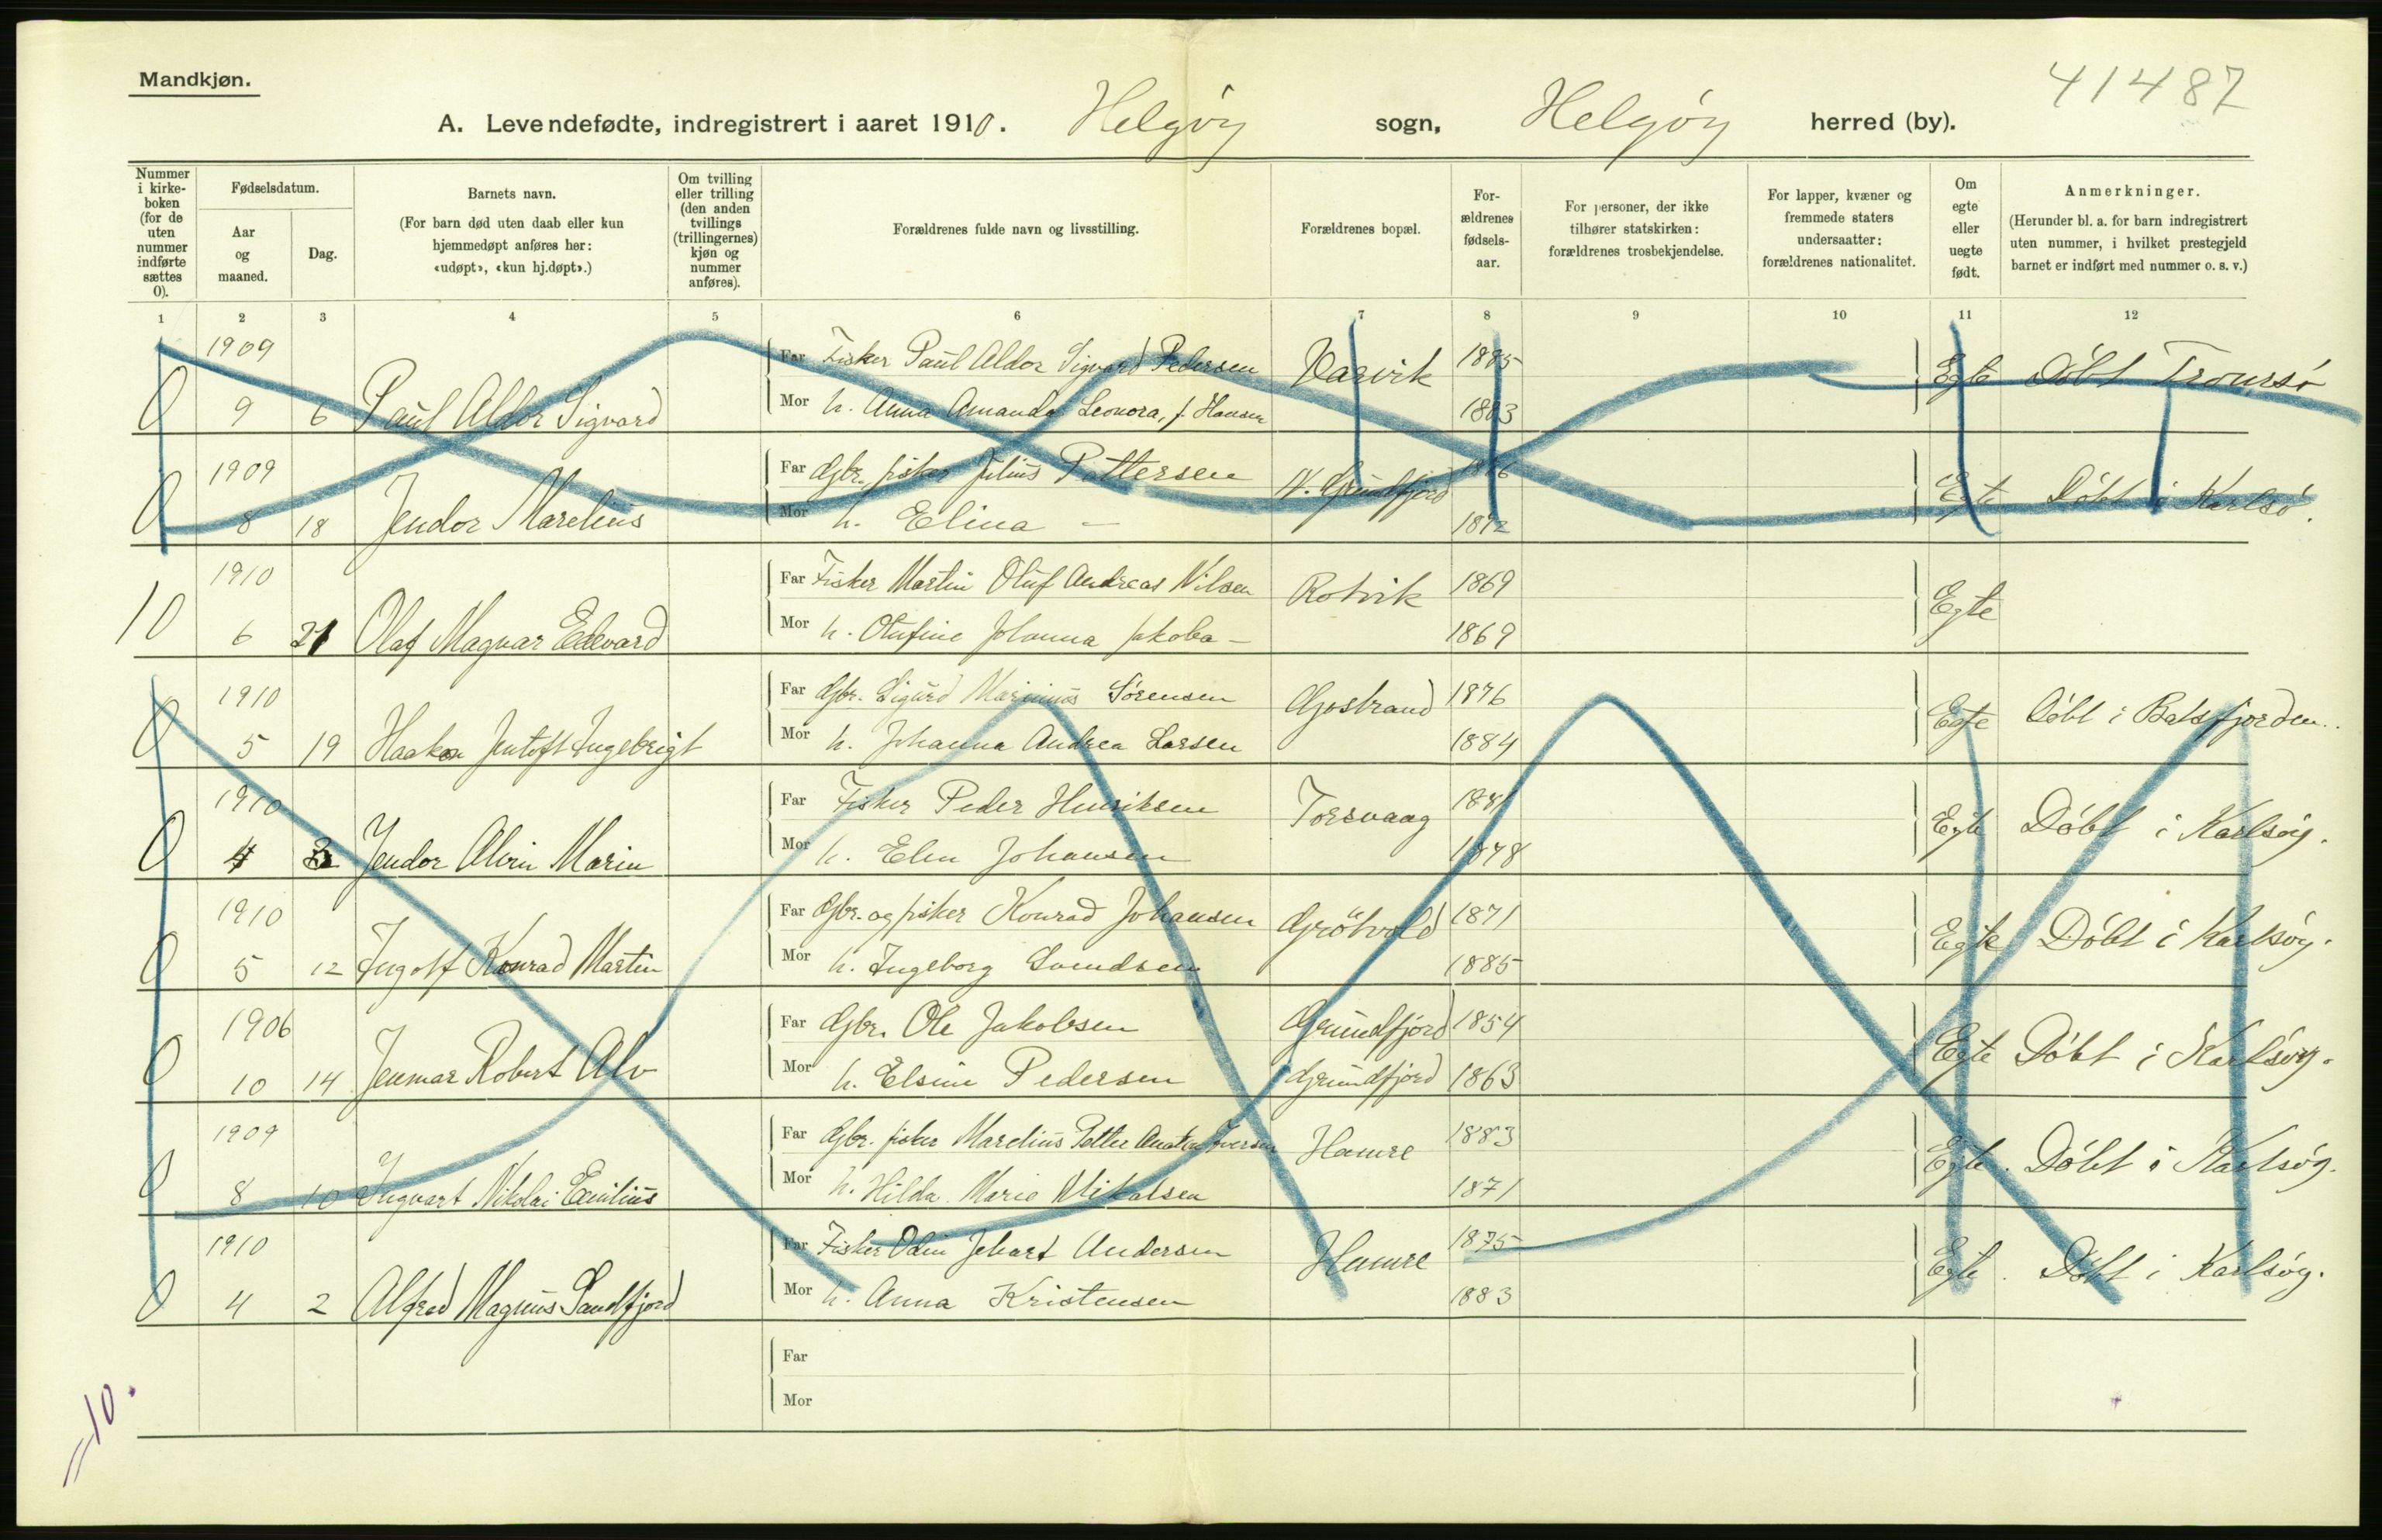 Mandkjøn.
41487
A. Levendefødte, indregistrert i aaret 1910. Helgøy sogn, Helgøy herred (by).
Nummer i kirke-boken (for de uten nummer indførte sættes 0).
Fødselsdatum.
Aar og maaned.
Dag.
Barnets navn.
(For barn død uten daab eller kun hjemmedøpt anføres her: «udøpt», «kun hj.døpt».)
Om tvilling eller trilling (den anden tvillings (trillingernes) kjøn og nummer anføres).
Forældrenes fulde navn og livsstilling.
Forældrenes bopæl.
For-ældrenes fødsels-aar.
For personer, der ikke tilhører statskirken: forældrenes trosbekjendelse.
For lapper, kvæner og fremmede staters undersaatter: forældrenes nationalitet.
Om egte eller uegte født.
Anmerkninger.
(Herunder bl. a. for barn indregistrert uten nummer, i hvilket prestegjeld barnet er indført med nummer o. s. v.)
1 2 3 4 5 6 7 8 9 10 11 12
1909 Far Fisker Paul Aldor Sigvard Pedersen Varvik 1885 Egte Døbt Tromsø
0 9 6 Paul Aldor Sigvard Mor h. Anna Amanda Leonora, f. Hansen 1883
1909 Far Gbr., fisker Julius Pettersen N. Grundfjord 1876 Egte Døbt i Karlsø.
0 8 18 Jendor Marelius Mor h. Elina — 1872
1910 Far Fisker Martin Oluf Andreas Nilsen Rotvik 1869 Egte
10 6 21 Olaf Magnar Edevard Mor h. Olufine Johanna Jakoba — 1869
1910 Far Gbr. Sigurd Marinius Sørensen Gjøstrand 1876 Egte Døbt i Balsfjorden.
0 5 19 Haakon Jentoft Ingebrigt Mor h. Johanna Andrea Larsen 1884
1910 Far Fisker Peder Henriksen Torsvaag 1881 Egte Døbt i Karlsøy.
0 4 3 Jendor Alvin Marin Mor h. Elen Johansen 1878
1910 Far Gbr. og fisker Konrad Johansen Grøtvold 1871 Egte Døbt i Karlsøy.
0 5 12 Ingolf Konrad Martin Mor h. Ingeborg Svendsen 1885
1906 Far Gbr. Ole Jakobsen Grundfjord 1854 Egte Døbt i Karlsøy.
0 10 14 Jenmar Robert Alv Mor h. Elsine Pedersen Grundfjord 1863
1909 Far Gbr. fisker Marelius Petter Iversen Hamre 1883 Egte. Døbt i Karlsøy.
0 8 10 Ingvart Nikolai Emilius Mor h. Hilda Marie Mikalsen 1871
1910 Far Fisker Odin Jehart Andersen Hamre 1875 Egte. Døbt i Karlsøy.
0 4 2 Alfred Magnus Sandfjord Mor h. Anna Kristensen 1883
Far
Mor
=10.